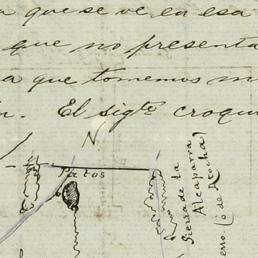 que se ve en esa
que no presenta
a que tomemos m
El sigte croqui
N.
Patos
Sierra de la
Alcaparra